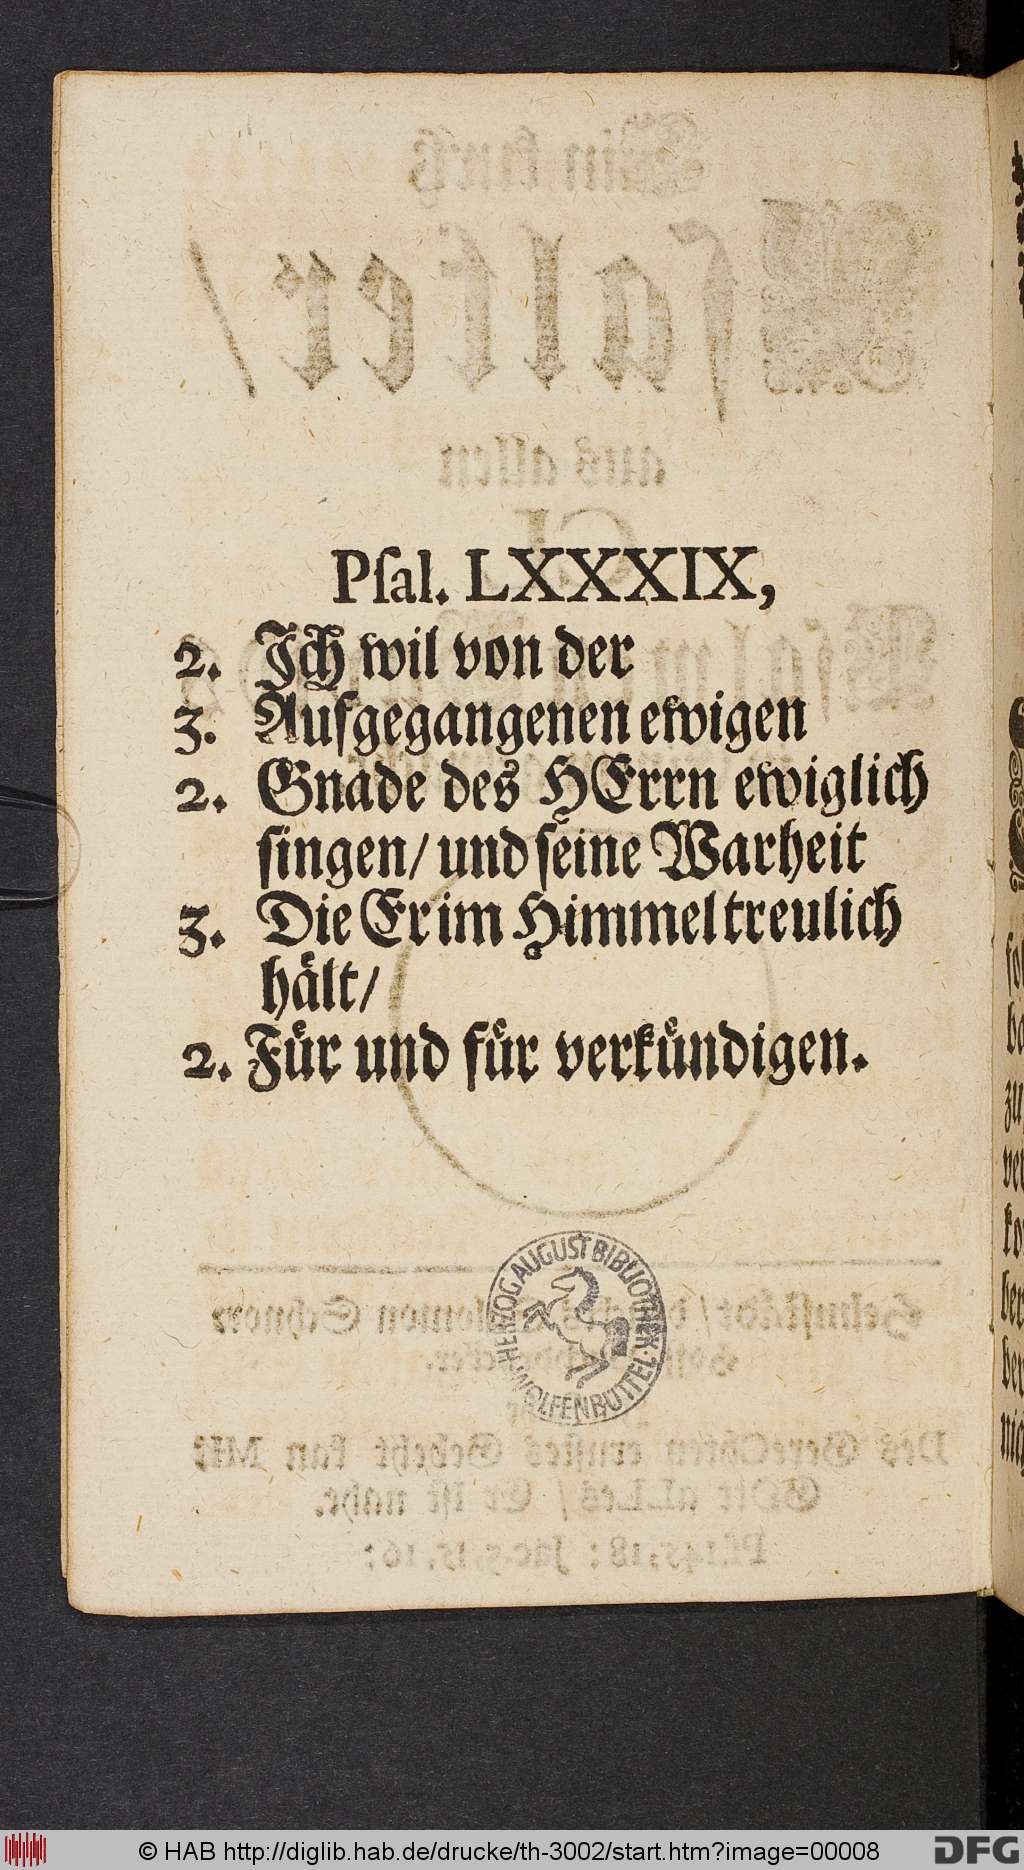 Pſal. LXXXIX,
2. Ich wil von der
3. Aufgegangenen ewigen
2. Gnade des HErrn ewiglich
ſingen/ und ſeine Warheit
3. Die Er im Himmel treulich
hält/
2. Für und für verkündigen.
HERZOG AUGUST BIBLIOTHEK
WOLFENBÜTTEL
© HAB http://diglib.hab.de/drucke/th-3002/start.htm?image=00008
DFG